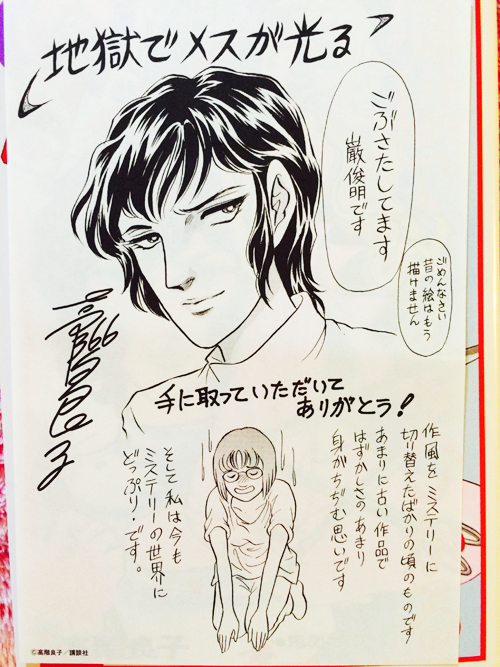 地獄でメスが光る
ごぶさたしてます
巌俊明です
ごめんなさい
昔の絵はもう
描けません
高階良子
手に取っていただいて
ありがとう!
作風をミステリーに
切り替えたばかりの頃のものです
あまりに古い作品で
はずかしさのあまり
身がちぢむ思いです
そして私は今も
ミステリーの世界に
どっぷり・です。
©高階良子/講談社